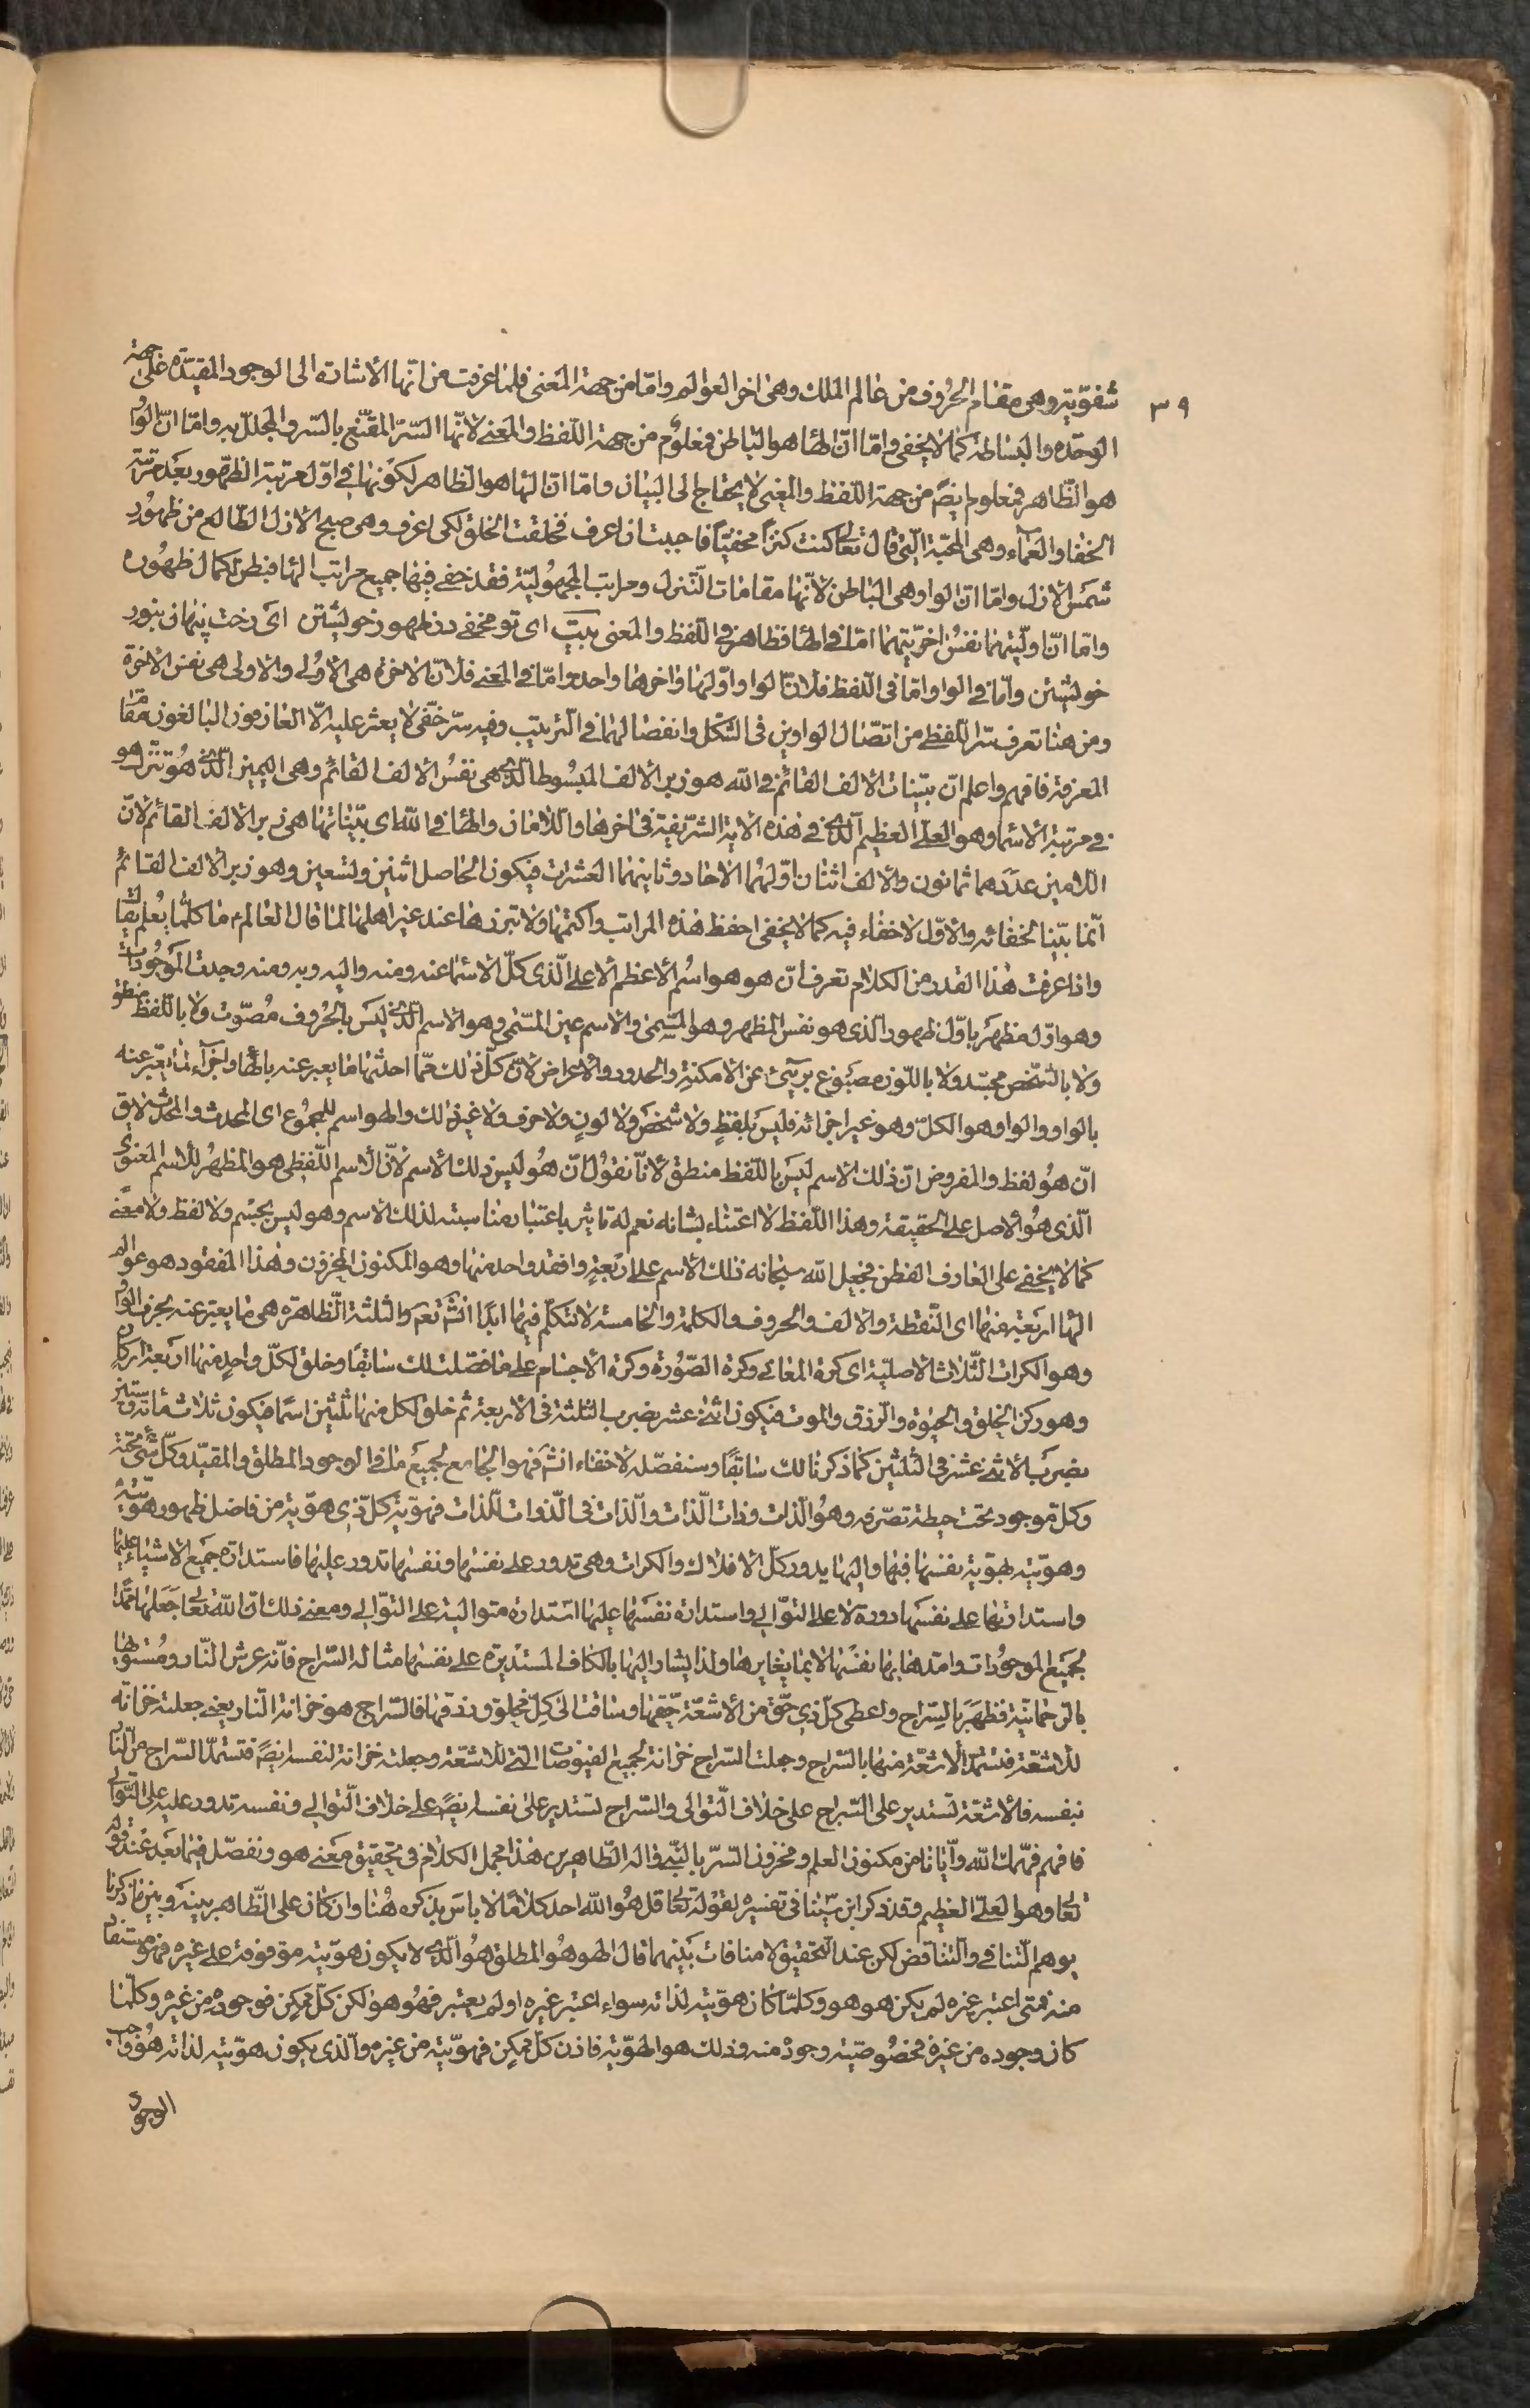 ٣٩
شفوّية وهى مقام الحروف من عالم الملك وهى اخر العوالم وامّا من جهة المعنى فلما عرفت من انّها الأشارة الى الوجود المقيّدة على جهة
الوحدة والبساطة كما لا يخفى وامّا انّ الهٓا هو الباطن فمعلوم من جهة اللّفظ والمعنى لانّها السّرّ المقنّع بالسّر والمجلّل به وامّا انّ الواو
هو الظّاهر فمعلوم ايضً من جهة اللّفظ والمعنى لا يحتاج الى البيان وامّا انّ الهٓا هو الظاهر لكونها فى اوّل مرتبة الظّهور بعد مرتبة
الخفاء والعمآء وهى المحبّة الّتى قال تعالى كنت كنزاً مخفيّاً فاحببت ان اعرف فخلقت الخلق لكى اعرف وهى صبح الازل الطّالع من ظهور
شمس الازل وامّا انّ الواو هى الباطن لأنّها مقامات التّنزل ومراتب المجهوليّة فقد خفى فيها جميع مراتب الهٓا فبطن لكمال ظهوره
وامّا انّ اوليّتهما نفس اخريّتهما امّا فى الهٓا فظاهر فى اللّفظ والمعنى بيت اى تو مخفى در ظهور خويشتن اى رخت پنهان بنور
خويشتن وامّا فى الواو امّا فى اللّفظ فلانّ الواو اوّلها واخرها واحد وامّا فى المعنى فلانّ الاخرة هى الأولى والاولى هى نفس الاخرة
ومن هنا تعرف سرّ اللّفظى من اتّصال الواوين فى الشّكل وانفصالهما فى التّرتيب وفيه سرّ خفّى لا يعثر عليه الّا العارفون البالغون مقام
المعرفة فافهم واعلم انّ بيّنات الالف القائم فى الله هو زبر الالف المبسوط الّذى هى نفس الالف القائم وهى اليمين الّذى هو تنزّل هو
فى مرتبة الأسما وهو العلى العظيم الّذى فى هذه الاية الشّريفة فى اخرها واللّامان والهٓا فى الله اى بيّناتها هى زبر الالف القائم لانّ
اللامين عددهما ثمانون والألف اثنان اوّلهما الاحاد وثانيهما العشرات فيكون الحاصل اثنين وتسعين وهو زبر الألف القائم
انّما بيّنا لخفائه والاوّل لا خفاء فيه كما لا يخفى احفظ هذه المراتب واكتمها ولا تبرزها عند غير اهلها لما قال العالم ما كلّما يعلم يقال
واذا عرفت هذا القدر من الكلام تعرف انّ هو هو اسم الأعظم الأعلى الّذى كلّ الأسما عنه ومنه واليه وبه ومنه وجدت الموجودات
وهو اوّل مظهر باوّل ظهور الّذى هو نفس المظهر وهو المسّمى والأسم عين المسّمى وهو الاسم الّذى ليس بالحروف مصّوت ولا باللّفظ منطق
ولا بالشّخص مجسّد ولا باللّون مصبوغ برئ عن الأمكنة والحدود والأعراض لانّ كلّ ذلك ممّا احدثها ما يعبر عنه بالهٓا واجرآء ما يعبّر عنه
بالواو والواو هو الكلّ وهو غير اجزائه فليس بلفظٍ ولا شخص ولا لونٍ ولا حرف ولا غير ذلك والهو اسم للمجموع اى المحدث والمحدث لا يق
انّ هو لفظ والمفروض انّ ذلك الاسم ليس باللّفظ منطق لأنّا نقول انّ هو ليس ذلك الأسم لانّ الأسم اللّفظى هو المظهر للأسم المعنوى
الّذى هو الأصل على الحقيقة وهذا اللّفظ لا اعتناء بشانه نعم له تاثير باعتبار مناسبته لذلك الأسم وهو ليس بجسم ولا لفظ ولا معنى
كما لا يخفى على العارف الفطن فجعل الله سبحانه ذلك الأسم على اربعةٍ وافقد واحد منها وهو المكنون المخزون وهذا المفقود هو عوالم
الهٓا اربعة منها اى النّقطة والالف والحروف والكلمة والخامسة لا نتكلّم فيها ابداً انشَ نعم والثلثة الظّاهرة هى ما يعبر عنه بحرف الواو
وهو الكرات الثّلاث الأصليّة اى كرة المعانى وكرة الصّورة وكرة الأجسام على ما فصّلت لك سابقاً وخلق لكلّ واحدٍ منها اربعة اركان
وهو ركن الخلق والحيوة والرّزق والموت فيكون اثنى عشر بضرب الثلثة فى الأربعة ثم خلق لكل منها ثلثين اسمًا فيكون ثلاث مائة وستين
بضرب الأثنى عشر فى الثلثين كما ذكرنا لك سابقاً وسنفصّله لا خفاء انشَ فهو الجامع لجميع ما فى الوجود المطلق والمقيّد وكلّ شئ تحته
وكلّ موجود تحت حيطة تصّرفه وهو الذات وذات الذّات والذّات فى الذّوات للذّات فهوّية كلّ ذى هوّية من فاضل ظهور هوّيته
وهوّيته بهوّية نفسها فيها واليها يدور كلّ الأفلاك والكرات وهى تدور على نفسها ونفسها تدور عليها فاستدارة جميع الأشياء عليها
واستدارتها على نفسها دورة لا على التّوالى واستدارة نفسها عليها استدارة متوالية على التّوالى ومعنى ذلك انّ الله تعالى جعلها ممدًّا
لجميع الموجودات وامدها بها نفسها لا بما يغايرها ولذا يشار اليها بالكاف المستديرة على نفسها مثاله السّراج فانّه عرش النّار ومستواها
بالرّحمانيّة فظهرَ بالسّراج واعطى كلّ ذى حقّ من الأشعّة حقّها وساقت الى كلّ مخلوق رزقها فالسّراج هو خزانة النّار يعنى جعلته خزانة
للأشعّة فتستمد الأشعّة منها بالسّراج وجعلت السّراج خزانة لجميع الفيوضات الّتى للأشعّة وجعلته خزانة لنفسه ايضً فتستمد السّراج من النّار
بنفسه فالأشعّة تستدير على السّراج على خلاف التّوالى والسّراج تستدير على نفسه ايضً على خلاف التّوالى ونفسه تدور عليه على التّوالى
فافهم فهّمك الله وايّانا من مكنون العلم ومخزون السّرّ بالنّبى واله الطّاهرين هذا مجمل الكلام فى تحقيق معنى هو ونفصّل فيما بعد عند قوله
تعالى وهو العلىّ العظيم وقد ذكر ابن سينا فى تفسيره لقوله تعالى قل هو الله احد كلاماً لا باس بذكره هنا وان كان على الظّاهر بينه وبين ما ذكرنا
يوهم التّنافى والتّناقض لكن عند التّحقيق لا منافات بينهما قال الهو هو المطلق هو الّذى لا يكون هوّيته موقوفة على غيره فهو مستفاد
منه فمتى اعتبر غيره لم يكن هو هو وكلّما كان هوّيته لذاته سواء اعتبر غيره او لم يعتبر فهو هو لكن كلّ ممكن فوجوده من غيره وكلّما
كان وجوده من غيره فخصوصيّة وجوده منه وذلك هو الهوّية فاذن كلّ ممكن فهوّيته من غيره والّذى يكون هوّيته لذاته هو واجب
الوجود